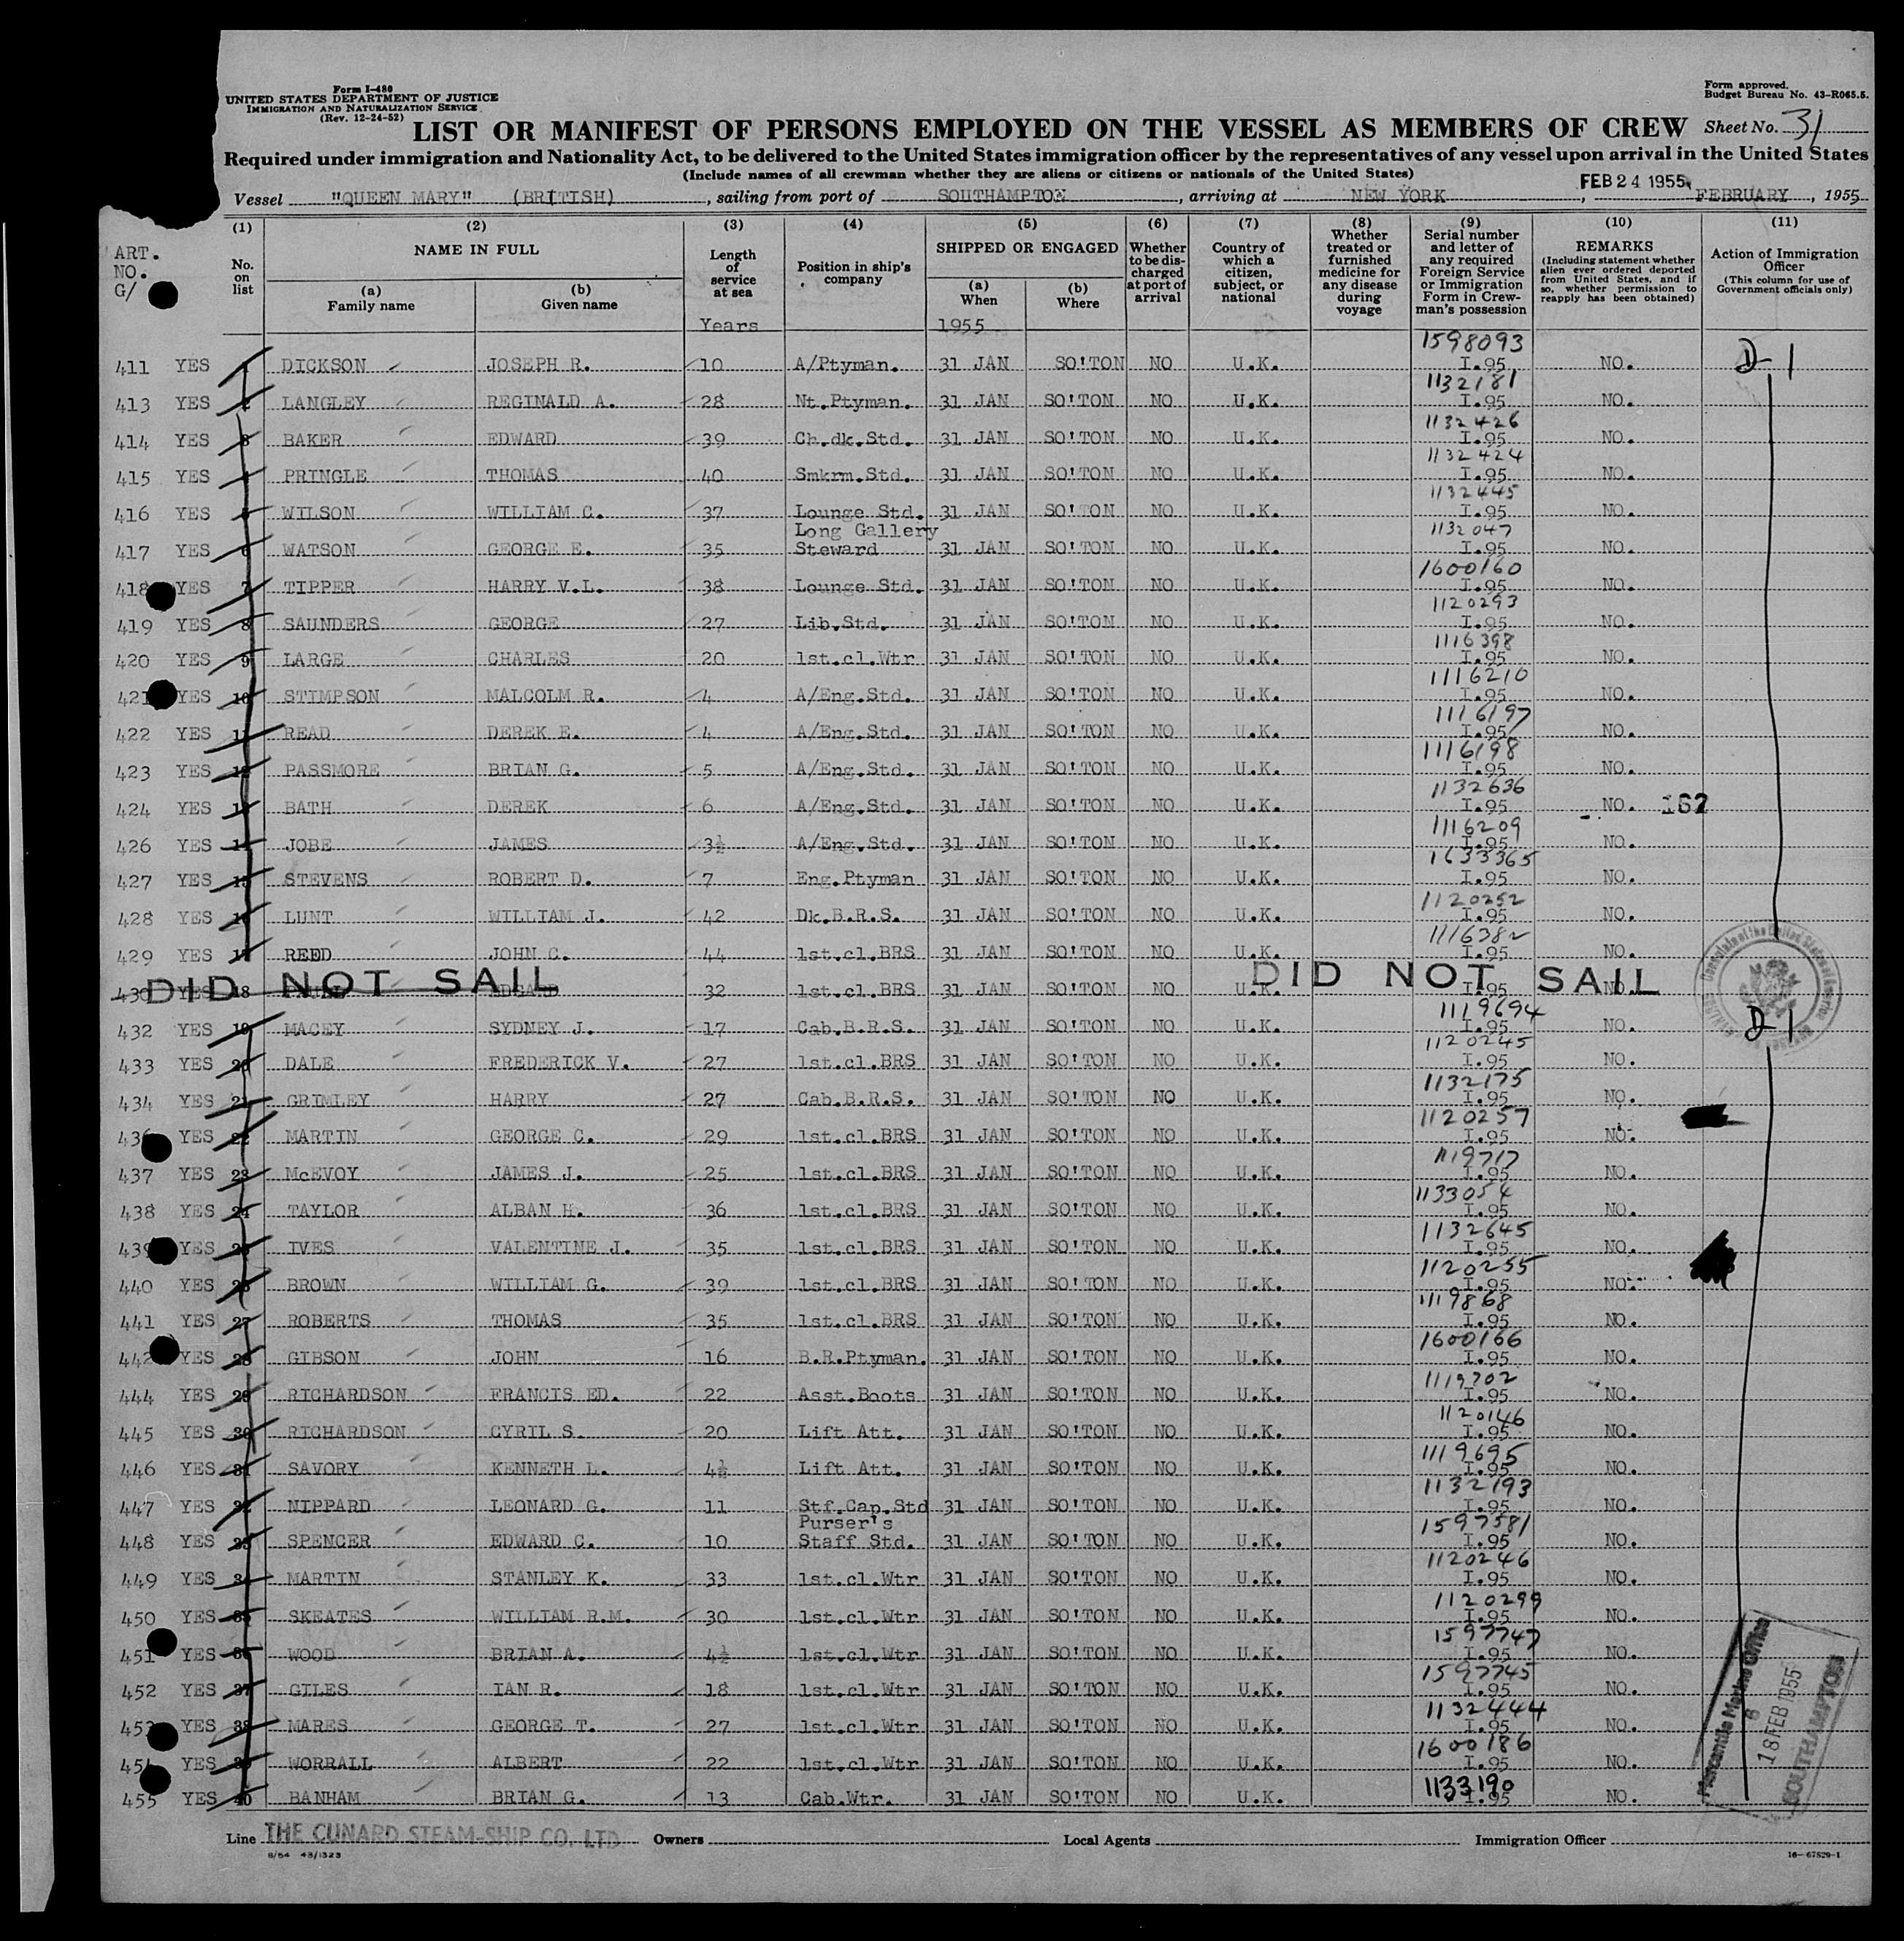 Form I-480
UNITED STATES DEPARTMENT OF JUSTICE
IMMIGRATION AND NATURALIZATION SERVICE
(Rev. 12-24-52)
Form approved.
Budget Bureau No. 43-R065.5.
LIST OR MANIFEST OF PERSONS EMPLOYED ON THE VESSEL AS MEMBERS OF CREW Sheet No. 31
Required under immigration and Nationality Act, to be delivered to the United States immigration officer by the representatives of any vessel upon arrival in the United States
(Include names of all crewman whether they are aliens or citizens or nationals of the United States)
FEB 24 1955
Vessel "QUEEN MARY" (BRITISH), sailing from port of SOUTHAMPTON, arriving at NEW YORK, FEBRUARY, 1955
ART. NO. G/
(1) No. on list
(2) NAME IN FULL (a) Family name (b) Given name
(3) Length of service at sea Years
(4) Position in ship's company
(5) SHIPPED OR ENGAGED (a) When 1955 (b) Where
(6) Whether to be discharged at port of arrival
(7) Country of which a citizen, subject, or national
(8) Whether treated or furnished medicine for any disease during voyage
(9) Serial number and letter of any required Foreign Service or Immigration Form in Crewman's possession
(10) REMARKS (Including statement whether alien ever ordered deported from United States, and if so, whether permission to reapply has been obtained)
(11) Action of Immigration Officer (This column for use of Government officials only)
411 YES 1 DICKSON JOSEPH R. 10 A/Ptyman. 31 JAN SO'TON NO U.K. 1598093 I.95 NO. D-1
413 YES 2 LANGLEY REGINALD A. 28 Nt.Ptyman. 31 JAN SO'TON NO U.K. 1132181 I.95 NO.
414 YES 3 BAKER EDWARD 39 Ch.dk.Std. 31 JAN SO'TON NO U.K. 1132426 I.95 NO.
415 YES 4 PRINGLE THOMAS 40 Smkrm.Std. 31 JAN SO'TON NO U.K. 1132424 I.95 NO.
416 YES 5 WILSON WILLIAM C. 37 Lounge Std. 31 JAN SO'TON NO U.K. 1132445 I.95 NO.
417 YES 6 WATSON GEORGE E. 35 Long Gallery Steward 31 JAN SO'TON NO U.K. 1132047 I.95 NO.
418 YES 7 TIPPER HARRY V.L. 38 Lounge Std. 31 JAN SO'TON NO U.K. 1600160 I.95 NO.
419 YES 8 SAUNDERS GEORGE 27 Lib.Std. 31 JAN SO'TON NO U.K. 1120293 I.95 NO.
420 YES 9 LARGE CHARLES 20 1st.cl.Wtr 31 JAN SO'TON NO U.K. 1116398 I.95 NO.
421 YES 10 STIMPSON MALCOLM R. 4 A/Eng.Std. 31 JAN SO'TON NO U.K. 1116210 I.95 NO.
422 YES 11 READ DEREK E. 4 A/Eng.Std. 31 JAN SO'TON NO U.K. 1116197 I.95 NO.
423 YES 12 PASSMORE BRIAN G. 5 A/Eng.Std. 31 JAN SO'TON NO U.K. 1116198 I.95 NO.
424 YES 13 BATH DEREK 6 A/Eng.Std. 31 JAN SO'TON NO U.K. 1132636 I.95 NO. 167
426 YES 14 JOBE JAMES 3½ A/Eng.Std. 31 JAN SO'TON NO U.K. 1116209 I.95 NO.
427 YES 15 STEVENS ROBERT D. 7 Eng.Ptyman 31 JAN SO'TON NO U.K. 1633365 I.95 NO.
428 YES 16 LUNT WILLIAM J. 42 Dk.B.R.S. 31 JAN SO'TON NO U.K. 1120252 I.95 NO.
429 YES 17 REED JOHN C. 44 1st.cl.BRS 31 JAN SO'TON NO U.K. 1116382 I.95 NO.
DID NOT SAIL DID NOT SAIL
430 YES 18 EDGAR 32 1st.cl.BRS 31 JAN SO'TON NO U.K. I.95 NO.
432 YES 19 MACEY SYDNEY J. 17 Cab.B.R.S. 31 JAN SO'TON NO U.K. 1119694 I.95 NO. D-1
433 YES 20 DALE FREDERICK V. 27 1st.cl.BRS 31 JAN SO'TON NO U.K. 1120245 I.95 NO.
434 YES 21 GRIMLEY HARRY 27 Cab.B.R.S. 31 JAN SO'TON NO U.K. 1132175 I.95 NO.
436 YES 22 MARTIN GEORGE C. 29 1st.cl.BRS 31 JAN SO'TON NO U.K. 1120257 I.95 NO.
437 YES 23 McEVOY JAMES J. 25 1st.cl.BRS 31 JAN SO'TON NO U.K. 1119717 I.95 NO.
438 YES 24 TAYLOR ALBAN H. 36 1st.cl.BRS 31 JAN SO'TON NO U.K. 1133054 I.95 NO.
439 YES 25 IVES VALENTINE J. 35 1st.cl.BRS 31 JAN SO'TON NO U.K. 1132645 I.95 NO.
440 YES 26 BROWN WILLIAM G. 39 1st.cl.BRS 31 JAN SO'TON NO U.K. 1120255 I.95 NO.
441 YES 27 ROBERTS THOMAS 35 1st.cl.BRS 31 JAN SO'TON NO U.K. 1119868 I.95 NO.
442 YES 28 GIBSON JOHN 16 B.R.Ptyman. 31 JAN SO'TON NO U.K. 1600166 I.95 NO.
444 YES 29 RICHARDSON FRANCIS ED. 22 Asst.Boots 31 JAN SO'TON NO U.K. 1119702 I.95 NO.
445 YES 30 RICHARDSON CYRIL S. 20 Lift Att. 31 JAN SO'TON NO U.K. 1120146 I.95 NO.
446 YES 31 SAVORY KENNETH L. 4½ Lift Att. 31 JAN SO'TON NO U.K. 1119695 I.95 NO.
447 YES 32 NIPPARD LEONARD G. 11 Stf.Cap.Std 31 JAN SO'TON NO U.K. 1132193 I.95 NO.
448 YES 33 SPENCER EDWARD C. 10 Purser's Staff Std. 31 JAN SO'TON NO U.K. 1597581 I.95 NO.
449 YES 34 MARTIN STANLEY K. 33 1st.cl.Wtr 31 JAN SO'TON NO U.K. 1120246 I.95 NO.
450 YES 35 SKEATES WILLIAM R.M. 30 1st.cl.Wtr 31 JAN SO'TON NO U.K. 1120299 I.95 NO.
451 YES 36 WOOD BRIAN A. 4½ 1st.cl.Wtr 31 JAN SO'TON NO U.K. 1597747 I.95 NO.
452 YES 37 GILES IAN R. 18 1st.cl.Wtr 31 JAN SO'TON NO U.K. 1597745 I.95 NO.
453 YES 38 MARES GEORGE T. 27 1st.cl.Wtr 31 JAN SO'TON NO U.K. 1132444 I.95 NO.
454 YES 39 WORRALL ALBERT 22 1st.cl.Wtr 31 JAN SO'TON NO U.K. 1600186 I.95 NO.
455 YES 40 BANHAM BRIAN G. 13 Cab.Wtr. 31 JAN SO'TON NO U.K. 1133190 I.95 NO.
Mercantile Marine Office
6
18 FEB 1955
SOUTHAMPTON
Line THE CUNARD STEAM-SHIP CO. LTD. Owners Local Agents Immigration Officer
8/54 43/1323
16—67829-1